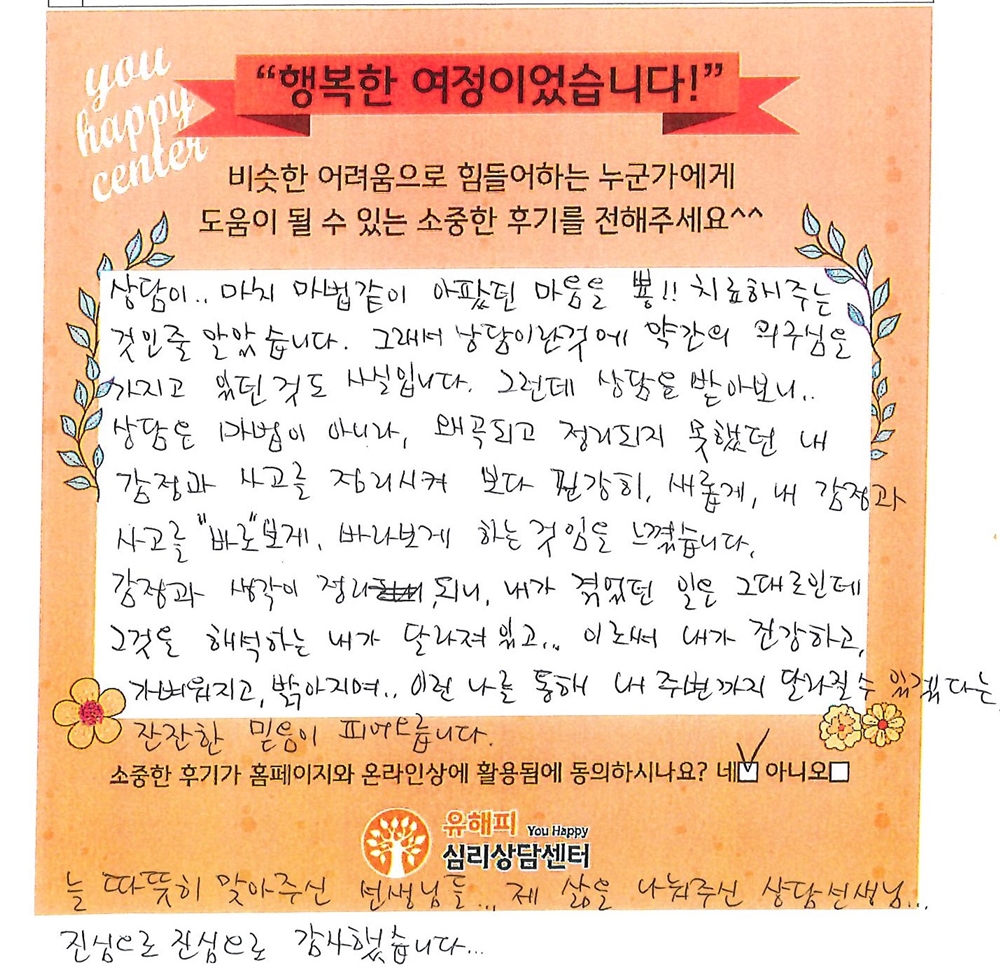 you
happy
center
“행복한 여정이었습니다!”
비슷한 어려움으로 힘들어하는 누군가에게
도움이 될 수 있는 소중한 후기를 전해주세요^^
상담이.. 마치 마법같이 아팠던 마음을 뿅!! 치료해주는
것인줄 알았습니다. 그래서 상담이란것에 약간의 의구심을
가지고 있던것도 사실입니다. 그런데 상담을 받아보니..
상담은 마법이 아니라, 왜곡되고 정리되지 못했던 내
감정과 사고를 정리시켜 보다 건강히, 새롭게, 내 감정과
사고를 "바로"보게, 바라보게 하는것임을 느꼈습니다.
감정과 생각이 정리 되니, 내가 겪었던 일은 그대로인데
그것을 해석하는 내가 달라져 있고.. 이로써 내가 건강하고,
가벼워지고, 밝아지며.. 이런 나를 통해 내 주변까지 달라질 수 있겠다는,
잔잔한 믿음이 피어오릅니다.
소중한 후기가 홈페이지와 온라인상에 활용됨에 동의하시나요? 네☑ 아니오□
유해피 You Happy
심리상담센터
늘 따뜻히 맞아주신 선생님들... 제 삶을 나눠주신 상담선생님...
진심으로 진심으로 감사했습니다...